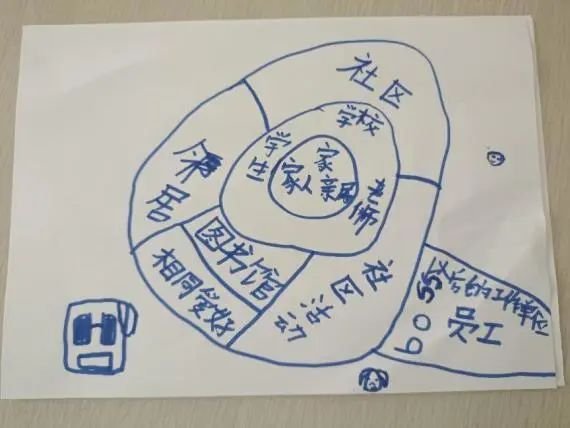 社区
学校
学生
家
家人
亲属
老师
邻居
图书馆
相同爱好
社区活动
boss
爸爸的工作单位
员工